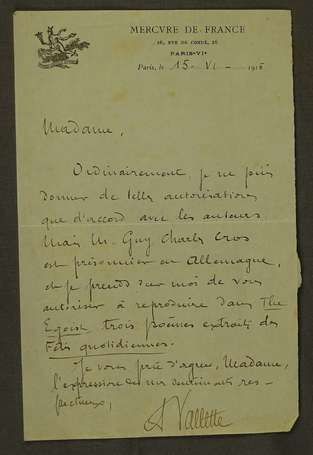 MERCVRE DE FRANCE
26, RVE DE CONDÉ, 26
PARIS-VIe
Paris, le 15 - VI - 1915
Madame,
Ordinairement, je ne puis
donner de telles autorisations
que d'accord avec les auteurs.
Mais M. Guy Charles Cros
est prisonnier en Allemagne,
et je prends sur moi de vous
autoriser à reproduire dans The
Egoist trois poèmes extraits des
Fêtes quotidiennes.
Je vous prie d'agréer, Madame,
l'expression de mes sentiments res-
pectueux,
A Vallette